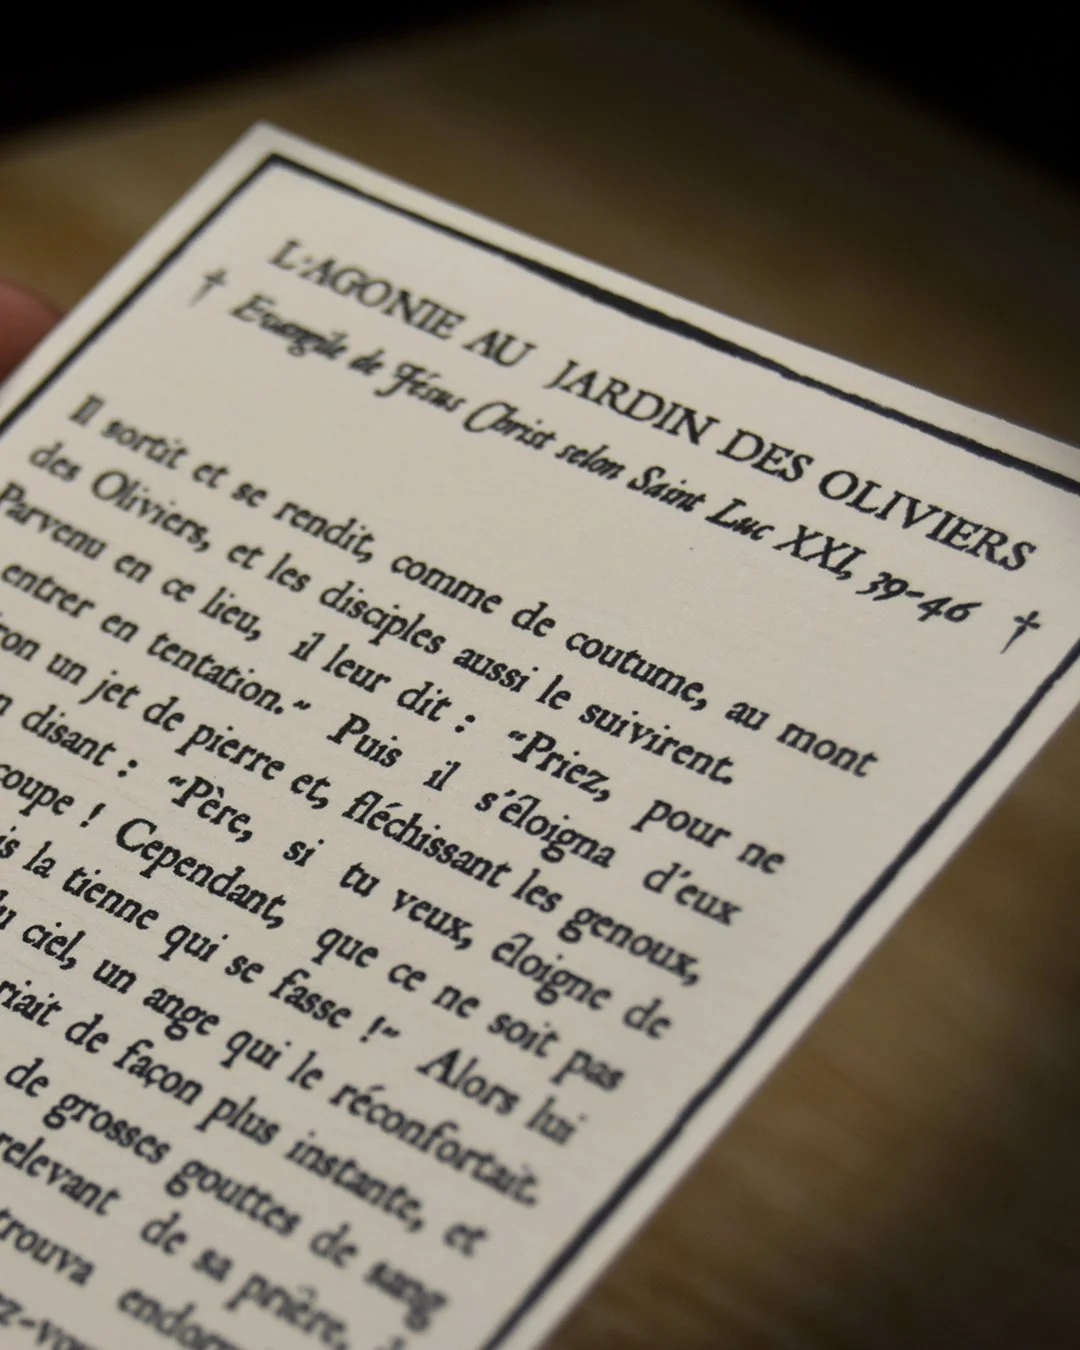 L'AGONIE AU JARDIN DES OLIVIERS
† Evangile de Jésus Christ selon Saint Luc XXI, 39-46 †
Il sortit et se rendit, comme de coutume, au mont
des Oliviers, et les disciples aussi le suivirent.
Parvenu en ce lieu, il leur dit : “Priez, pour ne
entrer en tentation.” Puis il s'éloigna d'eux
un jet de pierre et, fléchissant les genoux,
disant : “Père, si tu veux, éloigne de
coupe ! Cependant, que ce ne soit pas
la tienne qui se fasse !” Alors lui
ciel, un ange qui le réconfortait.
de façon plus instante, et
de grosses gouttes de sang
relevant de sa prière,
trouva